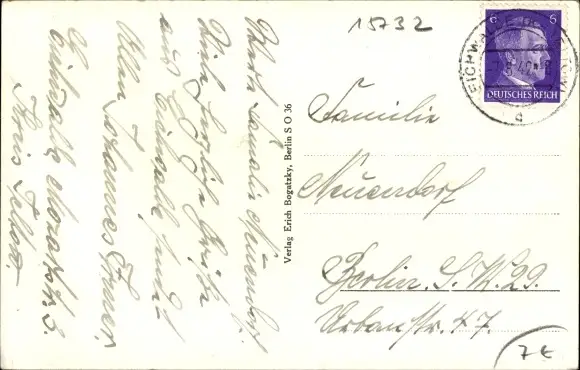 15732
6 6
DEUTSCHES REICH
EICHWALDE
c
Familie
Neuendorf
Berlin. S. W. 29.
Urbanstr. 47.
7 €
Verlag Erich Bogatzky, Berlin S O 36
Werte Familie Neuendorf.
Viele herzliche Grüße
aus Eichwalde sendet
Allen Johannes
Eichwalde Mozartstr. 3.
Kreis Teltow.